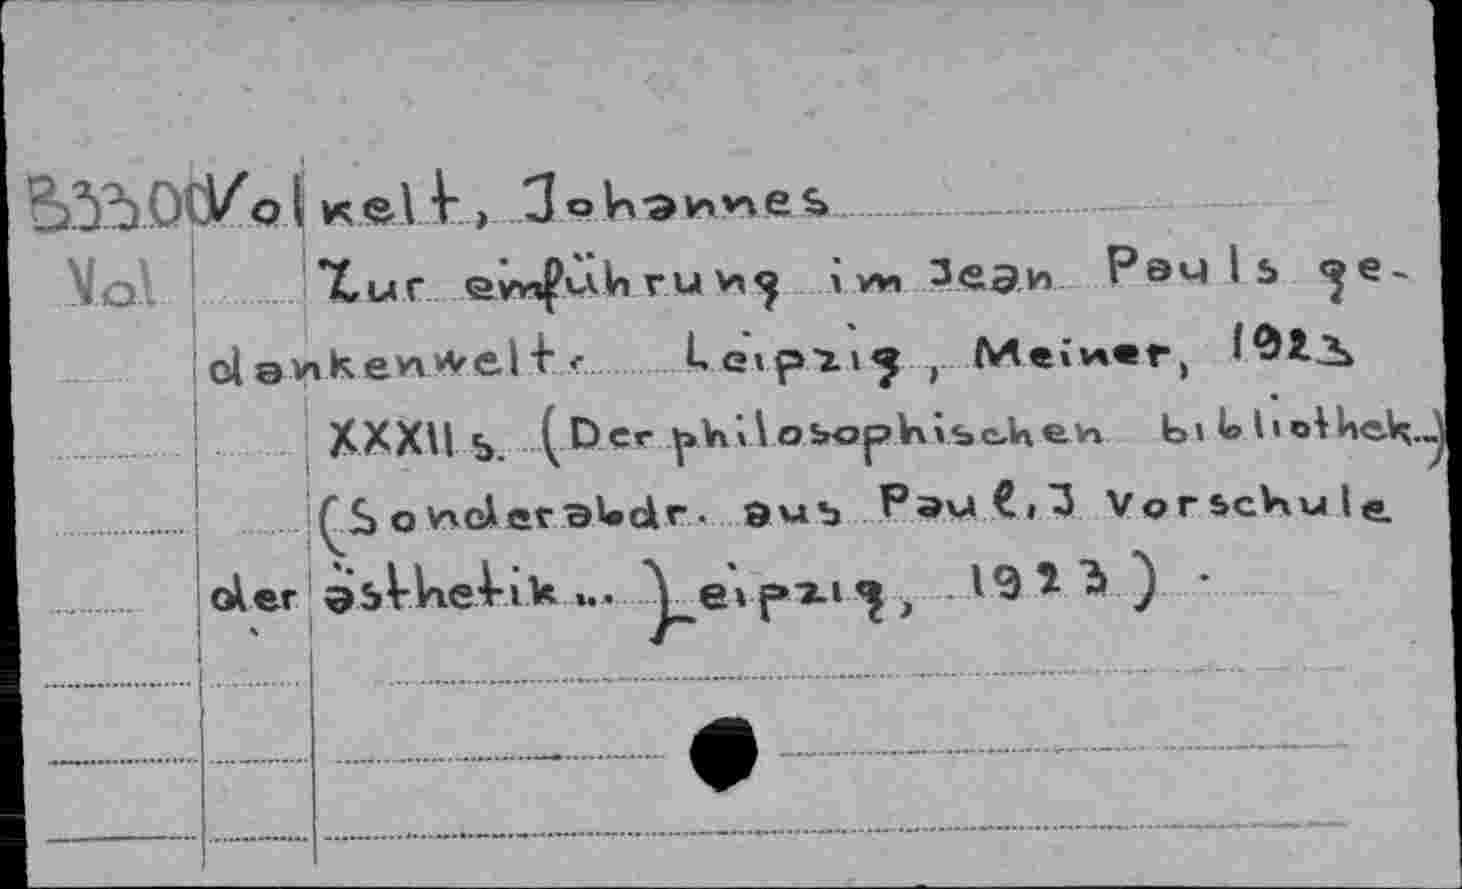 B3300 Volkelt, Johannes
Vol Zur einführung im Jean Pauls ge-
dankenwelt. Leipzig, Meiner, 1923
XXXII s. (Der philosophischen bibliothek..)
(Sonderabdr. aus Paul, J Vorschule
der ästhetik ... Leipzig, 1923).